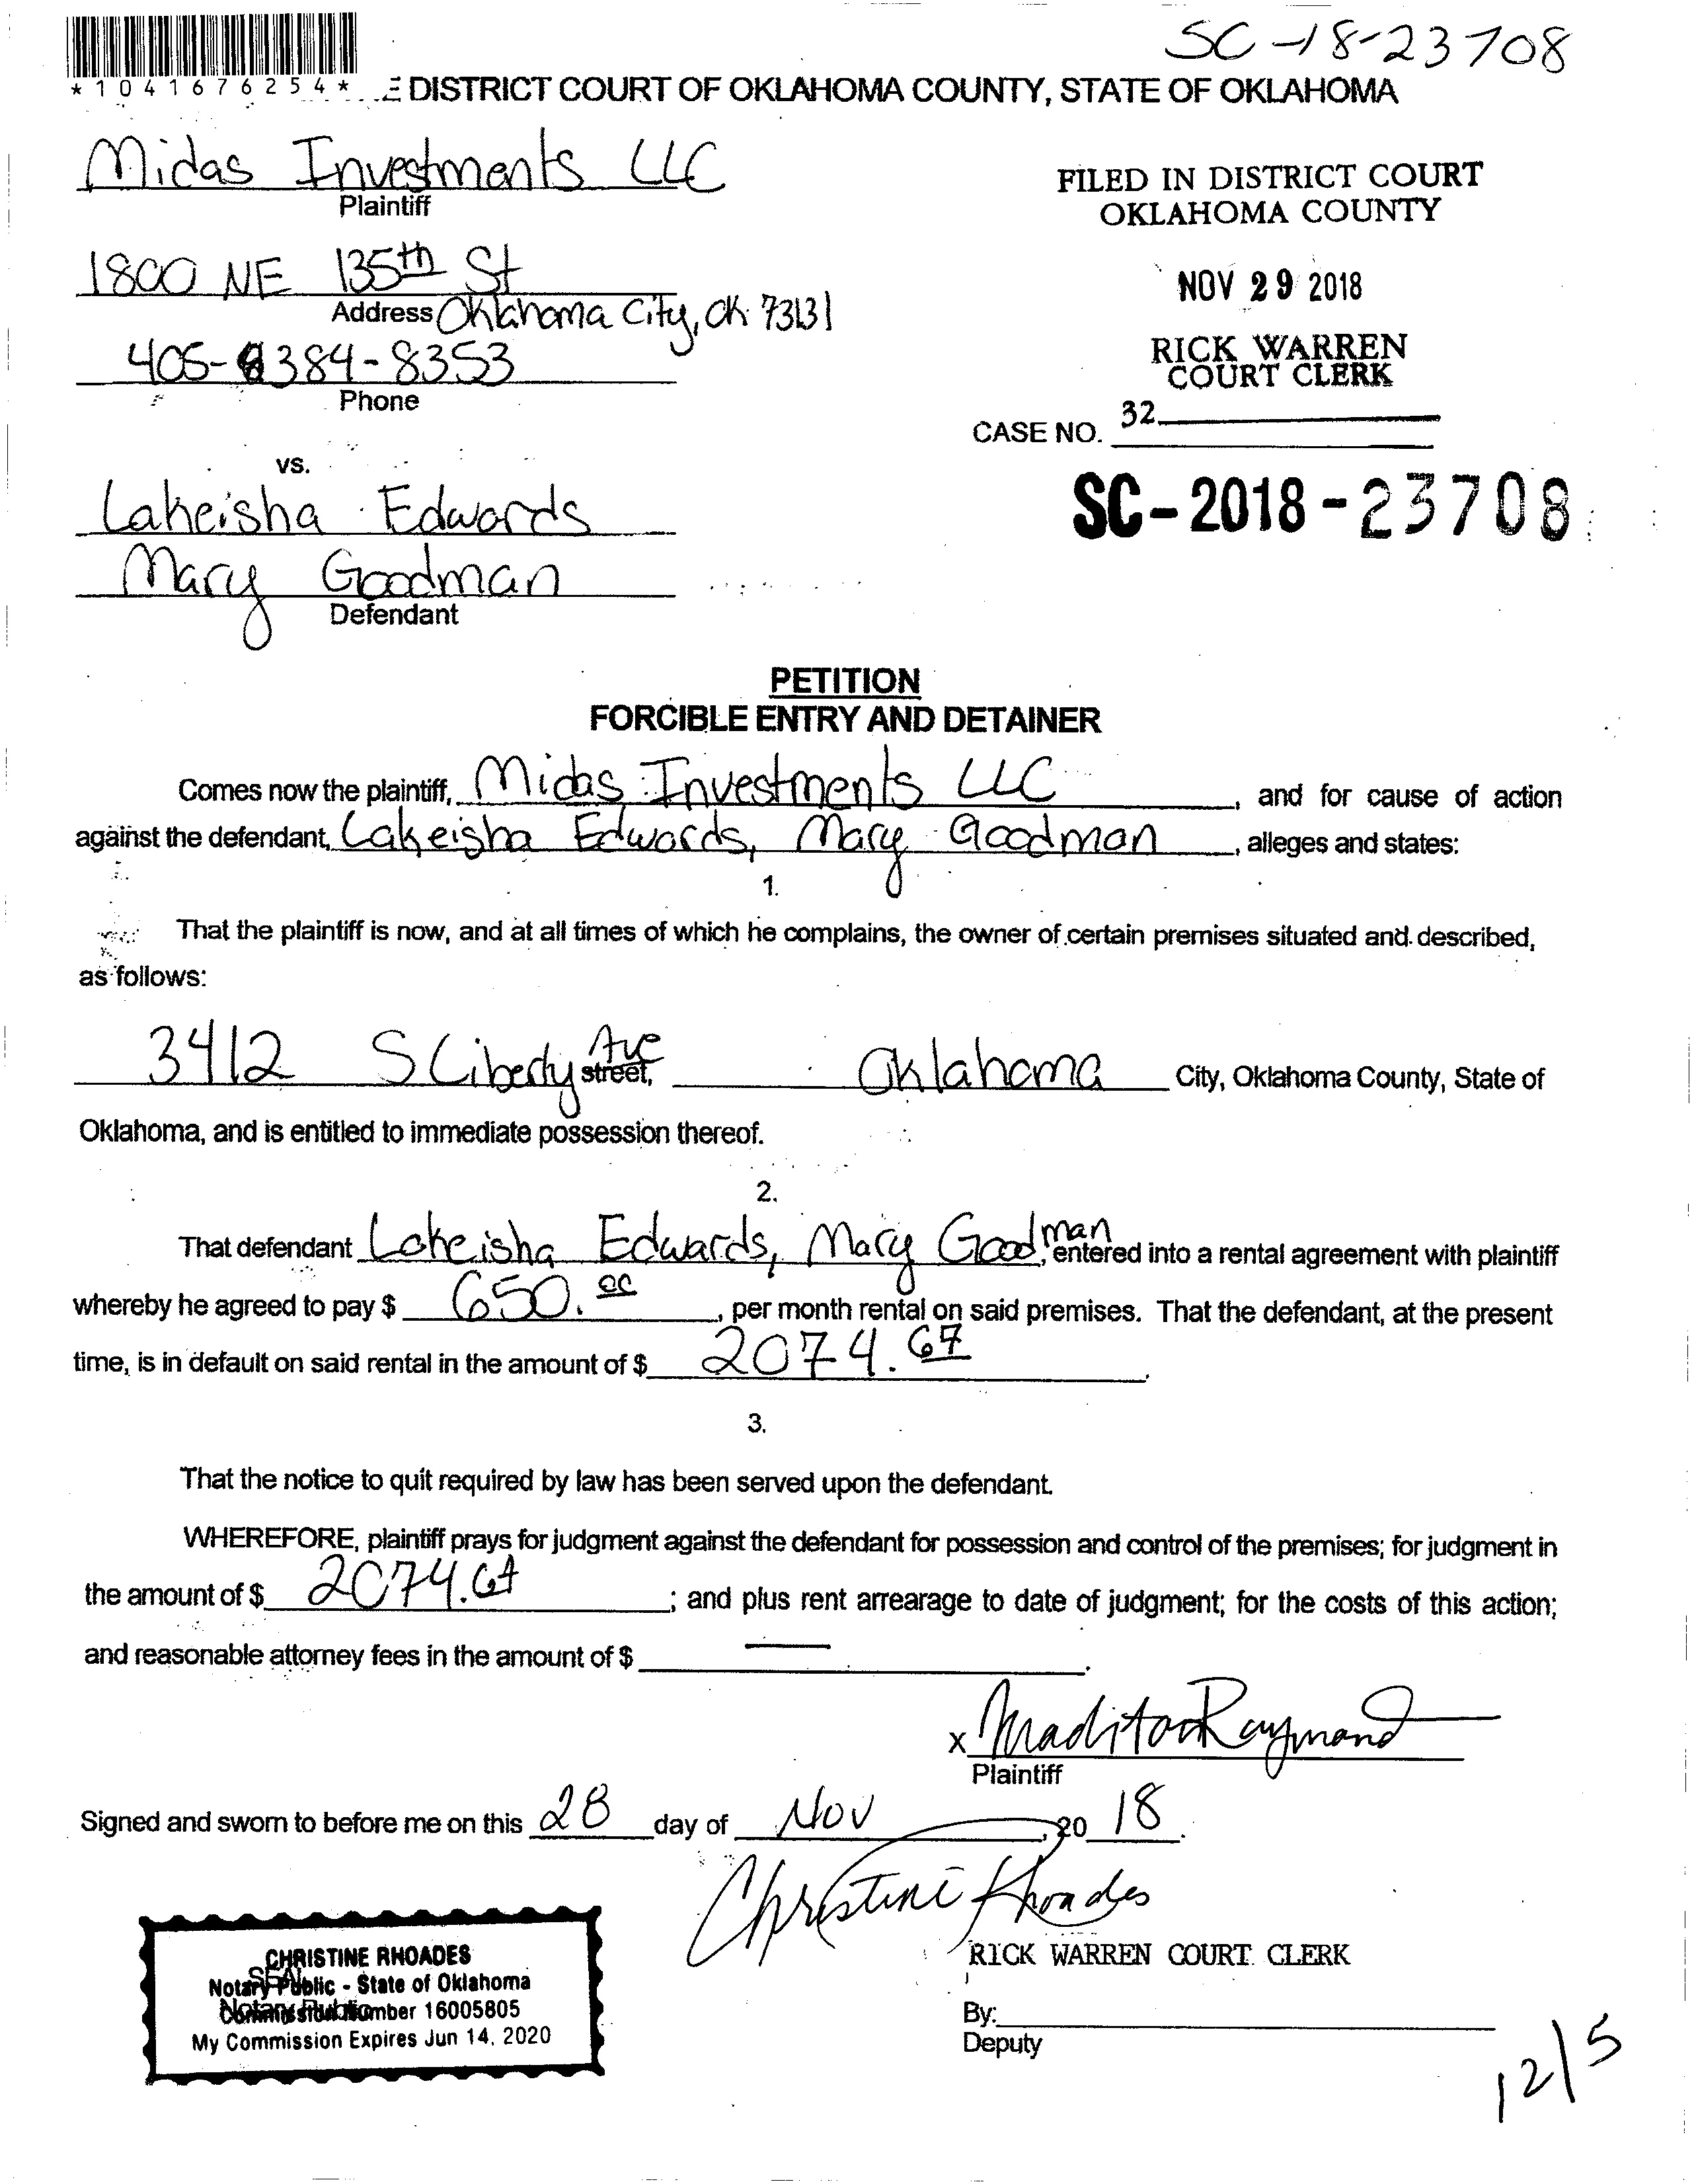 SC-18-23708
*1041676254* E DISTRICT COURT OF OKLAHOMA COUNTY, STATE OF OKLAHOMA
Midas Investments LLC
Plaintiff
FILED IN DISTRICT COURT
OKLAHOMA COUNTY
1800 NE 135th St
Address Oklahoma City, OK 73131
NOV 29 2018
405-8384-8353
Phone
RICK WARREN
COURT CLERK
CASE NO. 32
vs.
SC-2018-23708
Lakeisha Edwards
Mary Goodman
Defendant
PETITION
FORCIBLE ENTRY AND DETAINER
Comes now the plaintiff, Midas Investments LLC, and for cause of action
against the defendant, Lakeisha Edwards, Mary Goodman, alleges and states:
1.
That the plaintiff is now, and at all times of which he complains, the owner of certain premises situated and described,
as follows:
3412 S Liberty Ave street, Oklahoma City, Oklahoma County, State of
Oklahoma, and is entitled to immediate possession thereof.
2.
That defendant Lakeisha Edwards, Mary Goodman, entered into a rental agreement with plaintiff
whereby he agreed to pay $ 650.00, per month rental on said premises. That the defendant, at the present
time, is in default on said rental in the amount of $ 2074.67.
3.
That the notice to quit required by law has been served upon the defendant.
WHEREFORE, plaintiff prays for judgment against the defendant for possession and control of the premises; for judgment in
the amount of $ 2074.67; and plus rent arrearage to date of judgment; for the costs of this action;
and reasonable attorney fees in the amount of $ —.
x Raymond
Plaintiff
Signed and sworn to before me on this 28 day of Nov, 20 18.
Christine Rhoades
CHRISTINE RHOADES
Notary Public - State of Oklahoma
Commission Number 16005805
My Commission Expires Jun 14, 2020
SEAL
Notary Public
RICK WARREN COURT CLERK
By:
Deputy
12/5